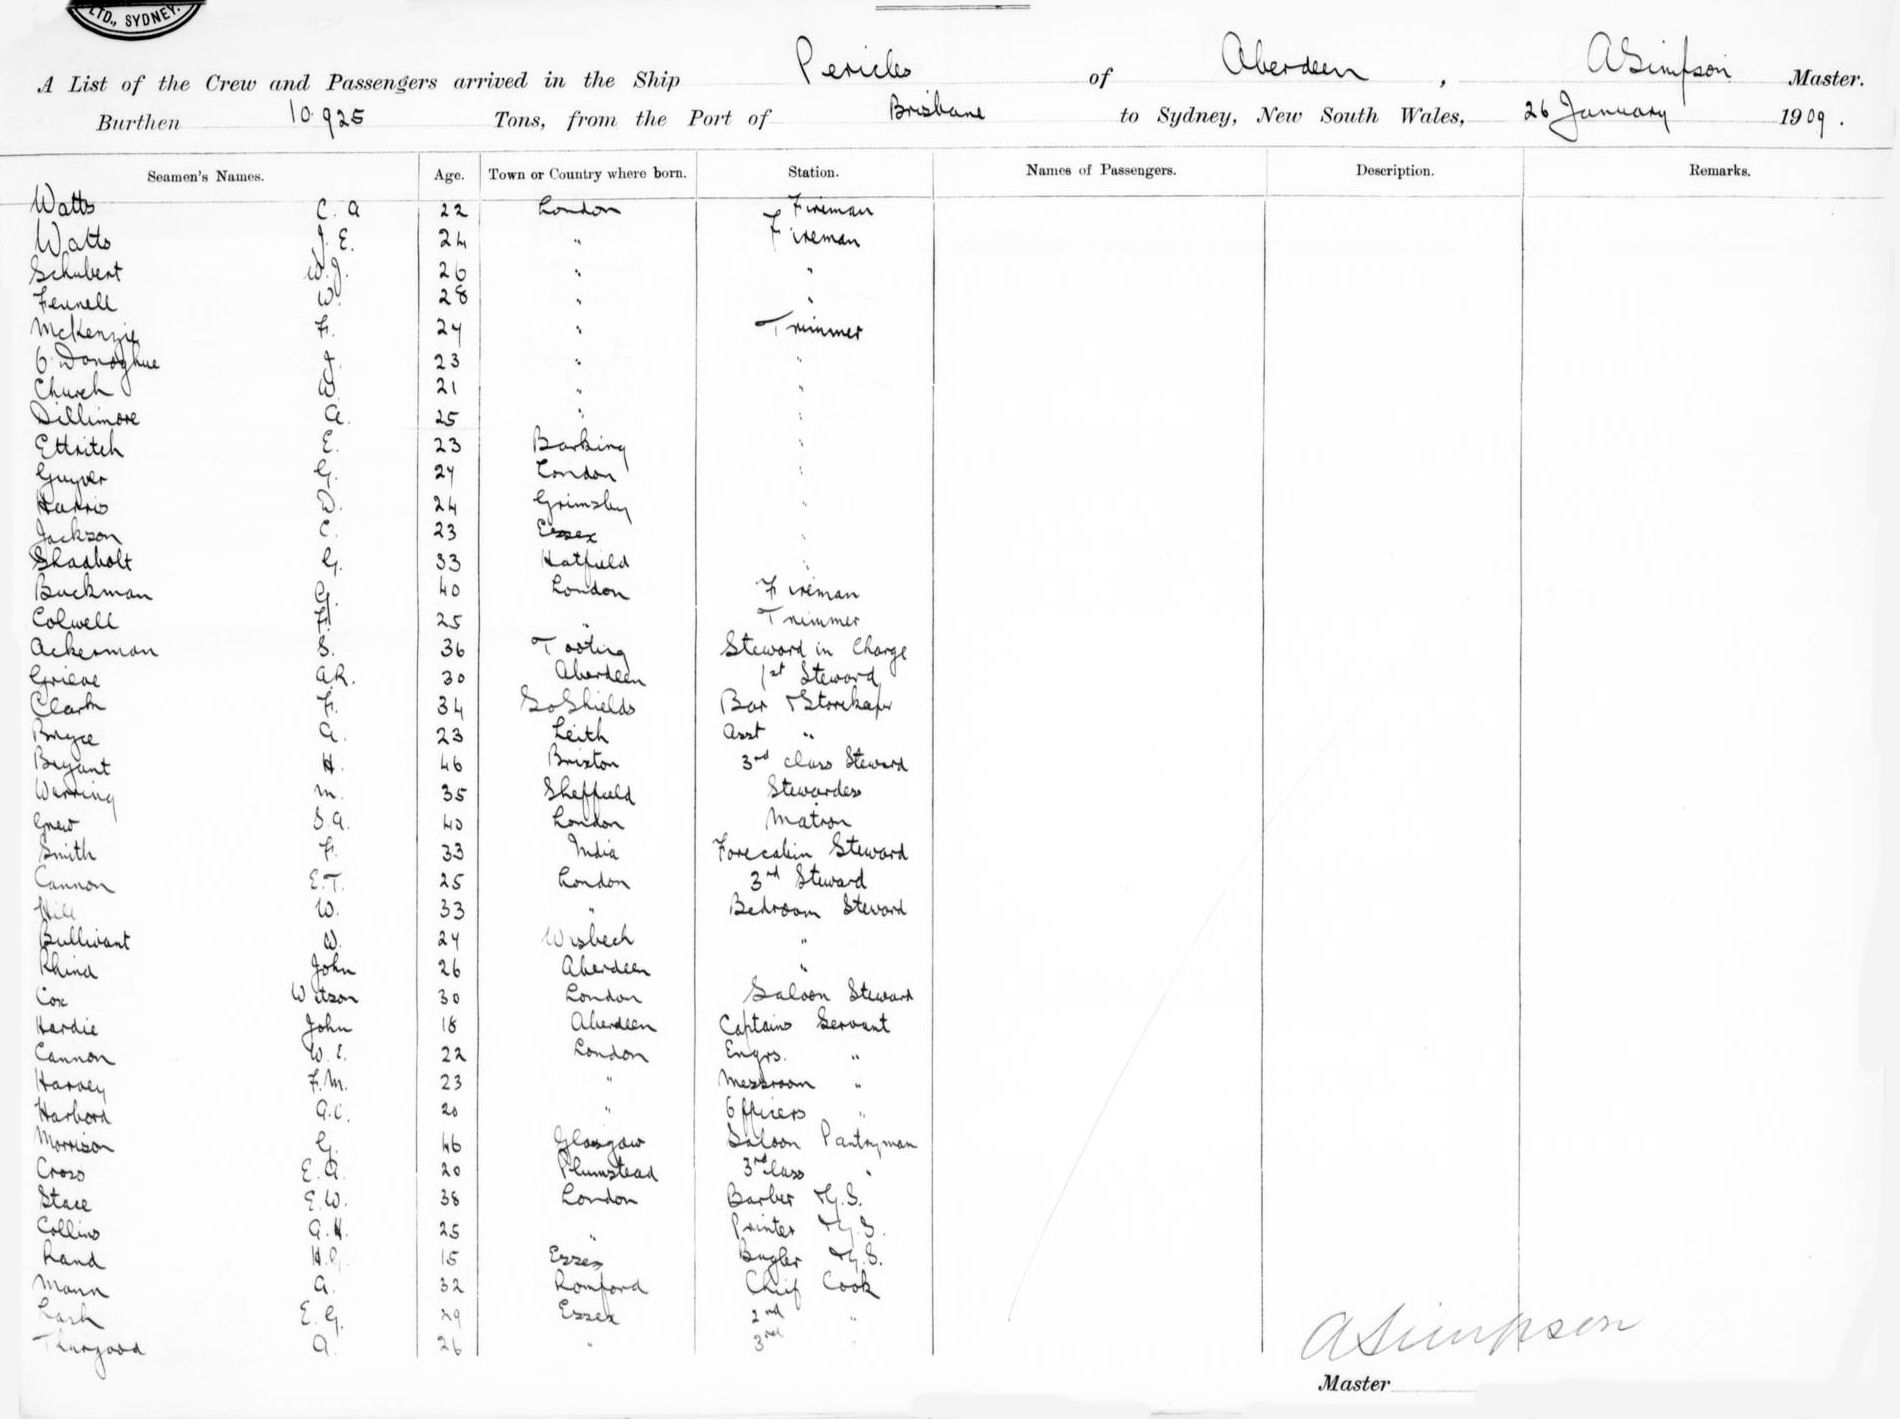 LTD., SYDNEY.
A List of the Crew and Passengers arrived in the Ship Pericles of Aberdeen, A Simpson Master.
Burthen 10.925 Tons, from the Port of Brisbane to Sydney, New South Wales, 26 January 1909.
Seamen's Names. Age. Town or Country where born. Station. Names of Passengers. Description. Remarks.
Watts C. A 22 London Fireman
Watts J. E. 24 " Fireman
Schubert W. J. 26 " "
Fennell W. 28 " "
McKenzie F. 24 " Trimmer
O'Donoghue J. 23 " "
Church W. 21 " "
Dillimore A. 25 " "
Ettritch E. 23 Barking "
Guyver G. 27 London "
Harris D. 24 Grimsby "
Jackson C. 23 Essex "
Shadbolt G. 33 Hatfield "
Buckman G. 40 London Fireman
Colwell F. 25 " Trimmer
Ackerman S. 36 Tooting Steward in Charge
Grieve AR. 30 Aberdeen 1st Steward
Clark F. 34 So Shields Bar & Storekeeper
Bryce A. 23 Leith Asst "
Bryant H. 46 Brixton 3rd class Steward
Warring M. 35 Sheffield Stewardess
Grew S A. 40 London Matron
Smith F. 33 India Forecabin Steward
Cannon E.T. 25 London 3rd Steward
Hill W. 33 " Bedroom Steward
Bullivant W. 24 Wisbech "
Rhind John 26 Aberdeen "
Cox Watson 30 London Saloon Steward
Hardie John 18 Aberdeen Captains Servant
Cannon W. E. 22 London Engrs. "
Harvey F. M. 23 " Messroom "
Harbord A.C. 20 " Officers "
Morrison G. 46 Glasgow Saloon Pantryman
Cross E. A. 20 Plumstead 3rd class "
Stace E. W. 38 London Barber & G. S.
Collins A. H. 25 " Printer & G. S.
Rand H. G. 15 Essex Bugler & G. S.
Mann A. 32 Romford Chief Cook
Lash E. G. 29 Essex 2nd "
Thurgood A. 26 " 3rd "
A Simpson
Master